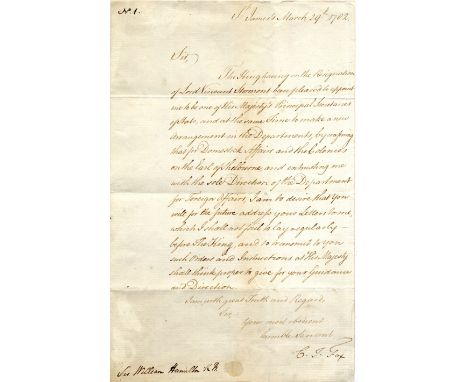 N.º 1.
St James's March 29th 1782.
Sir,
The King having on the Resignation
of Lord Viscount Stormont been pleased to appoint
me to be one of His Majesty's Principal Secretaries
of State, and at the same Time to make a new
arrangement in the Departments, by conferring
that for Domestick Affairs and the Colonies
on the Earl of Shelburne, and entrusting me
with the sole Direction of the Department
for Foreign Affairs, I am to desire that You
will for the future address your Letters to me,
which I shall not fail to lay regularly
before The King, and to transmit to you
such Orders and Instructions as His Majesty
shall think proper to give for your Guidance
and Direction.
I am with great Truth and Regard,
Sir
Your most obedient
humble Servant
C. J. Fox
Sir William Hamilton K.B.